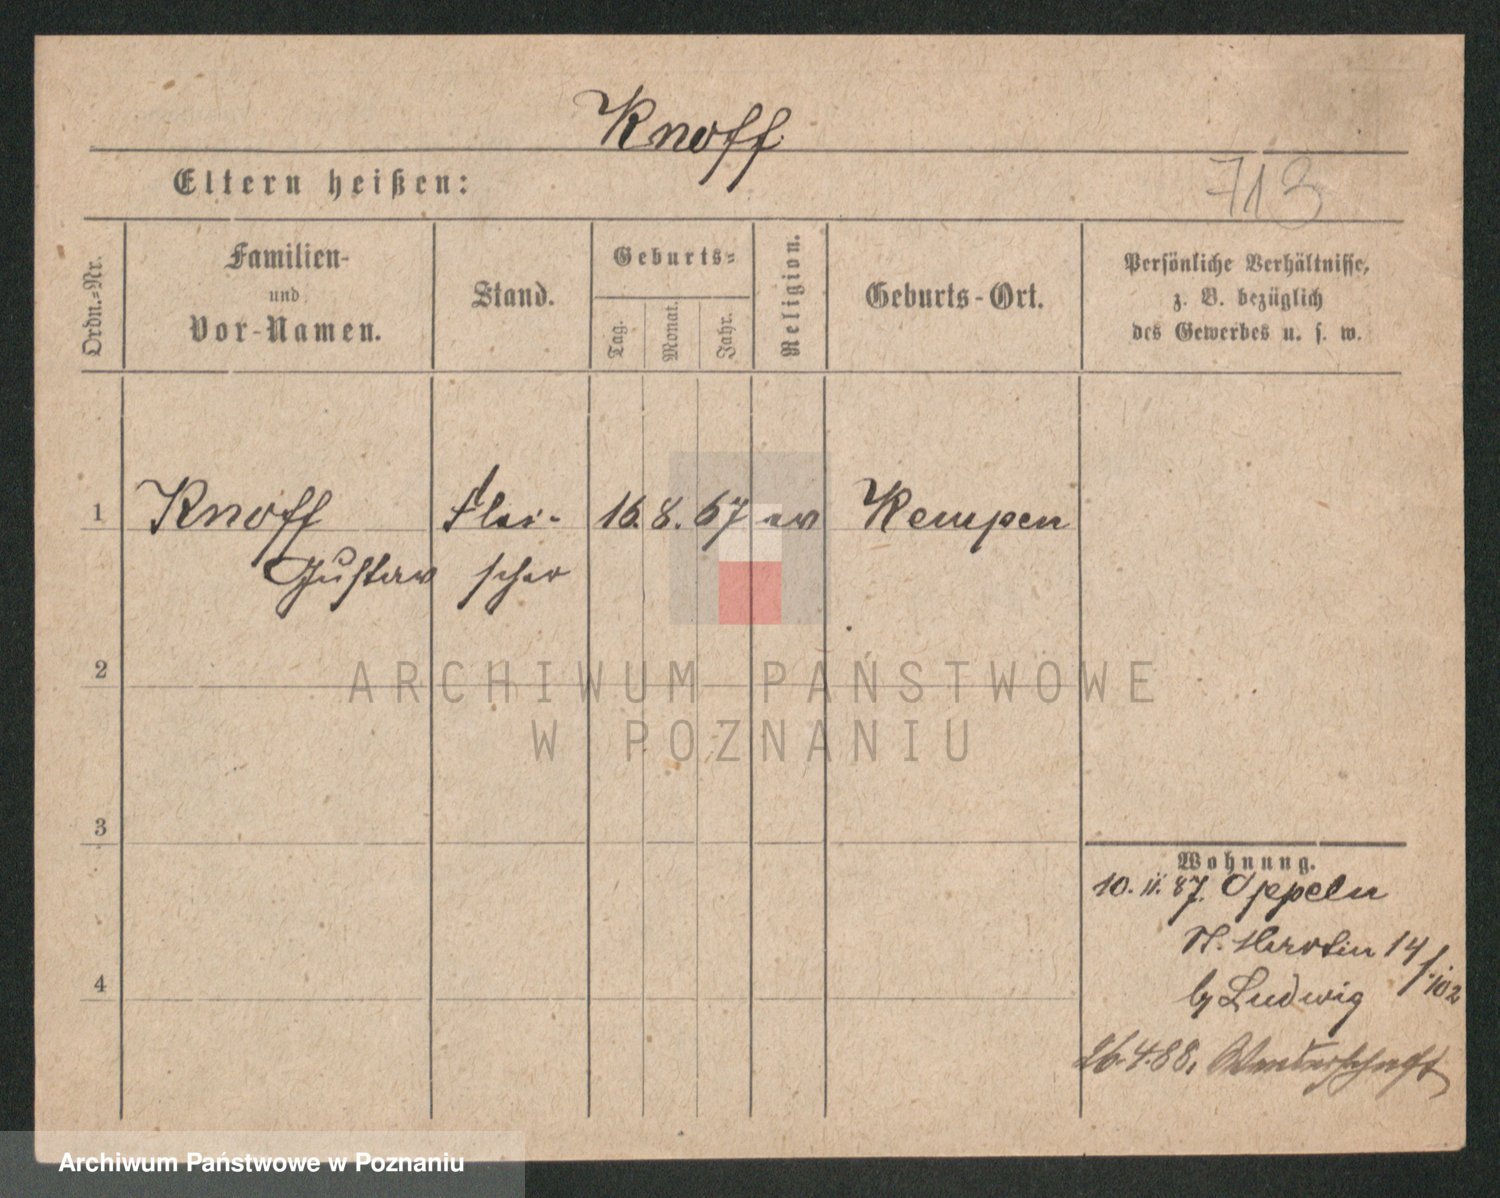 Knoff
Eltern heißen:
713
Ordn.-Nr.
Familien-
und
Vor-Namen.
Stand.
Geburts-
Tag.
Monat.
Jahr.
Religion.
Geburts-Ort.
Persönliche Verhältnisse,
z. B. bezüglich
des Gewerbes u. s. w.
1 Knoff Flei- 16. 8. 67 ev Kempen
Gustav scher
2
ARCHIWUM PAŃSTWOWE
W POZNANIU
3
Wohnung.
10. 11. 87. Oppeln
St. Martin 14
/102
by Ludwig
4
26. 4. 88.
Archiwum Państwowe w Poznaniu